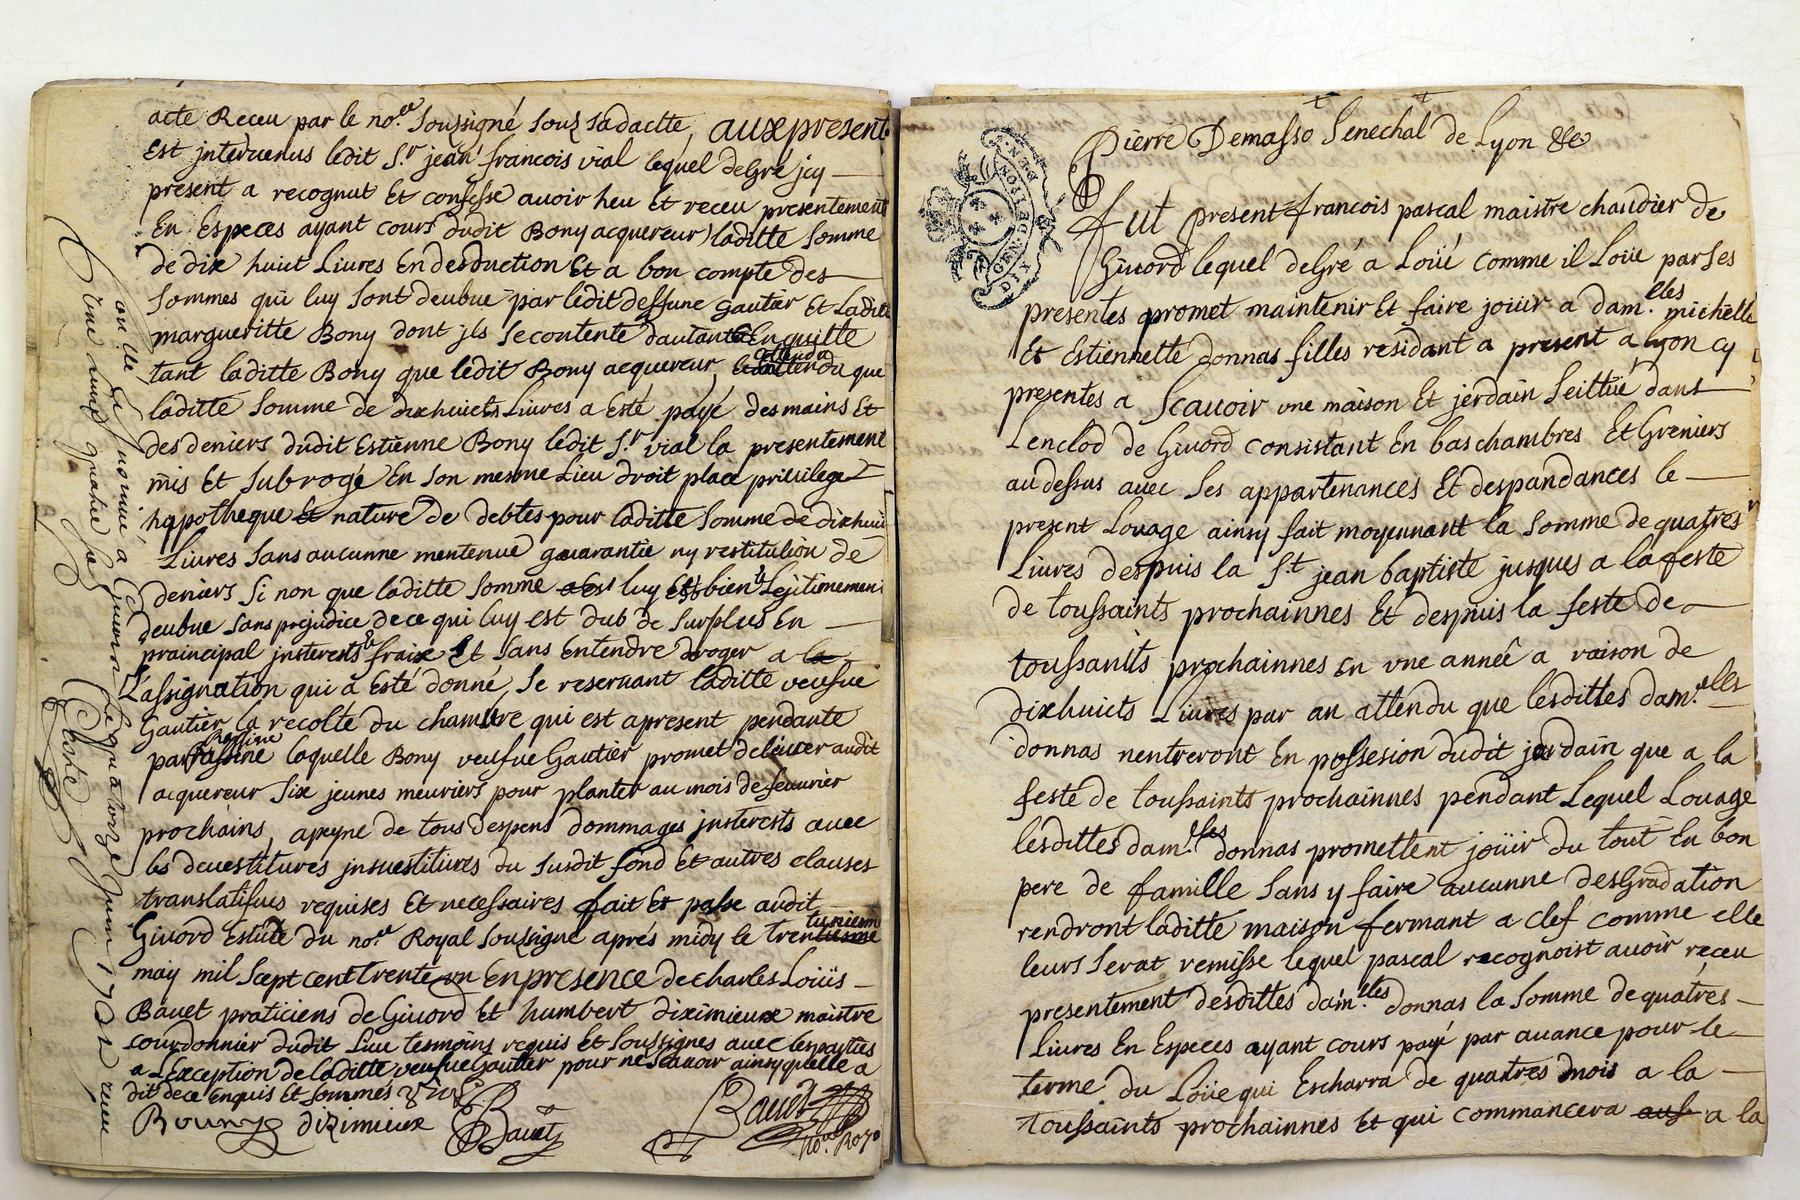 acte Receu par le no.re Souzsigné Souz Sadactte, aux present
Est jntervenus ledit S.r jean francois vial lequel de Gré jcy
present a recognut Et confesse avoir heu Et receu presentement
En Especes ayant cours dudit Bony acquereur laditte Somme
de dix huict Livres En desduction Et a bon compte des
Sommes qui luy Sont deubue par ledit deffunt Gautier Et Ladite
margueritte Bony dont jls Se contente dautant En quitte
tant laditte Bony que ledit Bony acquereur, attendu que
laditte Somme de dixhuicts Livres a Esté payé des mains Et
des deniers dudit Estienne Bony ledit S.r vial la presentement
mis Et Subrogé En Son mesme Lieu droit place privilege
hypotheque Et nature de debtes pour laditte Somme de dixhuit
Livres Sans aucunne mentenue guarantie ny restitution de
deniers Si non que laditte Somme luy Est bien & Legitimement
deubue Sans prejudice de ce qui luy est dub de Surplus En
praincipal justerests & fraix Et Sans Entendre droger a la
L'assignation qui a Esté donné, Se reservant laditte veufue
Gautier la recolte du chamvre qui est apresent pendante
par Rassine laquelle Bony veufue Gautier promet delivrer audit
acquereur Six jeunes meuriers pour planter au mois de fevrier
prochains, apeyne de tous despens dommages justerests avec
les devestitures jnsvestitures du Susdit fond Et autres clauses
translatifves requises Et necessaires fait Et passe audit
Givord Estude du no.re Royal Souzsigne aprés midy le trentuniesme
may mil Sept cent trente un En presence de charles Loüis
Bavet praticiens de Givord Et humbert diximieux maistre
courdonnier dudit Lieu tesmoins requis Et Soussignes avec les partyes
a L'Exception de laditte veufue Gautier pour ne Scavoir ainsy quelle a
dit de ce enquis Et Sommés
Bouny diximieux Bavet Bavet
no.re Roy.
a Givord Le quatorze Juin 1731 receu
Pierre Demasso Senechal de Lyon &c
fut present francois pascal maistre chaudier de
Givord lequel de Gré a Loüé comme il Loüe par Ses
presentes promet maintenir Et faire joüir a dam.elles michelle
Et Estiennette donnas filles residant a present a Lyon cy
presentes a Scavoir une maison Et jerdain Seittüé dans
Lenclod de Givord consistant En bas chambres Et Greniers
au dessus avec Ses appartenances Et despandances le
present Louage ainsy fait moyennantt la Somme de quatres
Livres despuis la S.t jean baptiste jusques a la feste
de toussaints prochainnes Et despuis la feste de
toussaints prochainnes En une année a raison de
dixhuicts Livres par an attendu que lesdittes dam.elles
donnas nentreront En possesion dudit jardain que a la
feste de toussaints prochainnes pendant Lequel Louage
lesdittes dam.lles donnas promettent joüir du tout En bon
pere de famille Sans y faire aucunne desGradation
rendront laditte maison fermant a clef comme elle
leurs Serat remisse lequel pascal recognoist avoir receu
presentement desdittes dam.lles donnas la Somme de quatres
Livres En Especes ayant cours payé par avance pour le
terme du Loüe qui Escharra de quatres mois a la
toussaints prochainnes Et qui commancera a la
GEN.DE.LION
DIX DEN